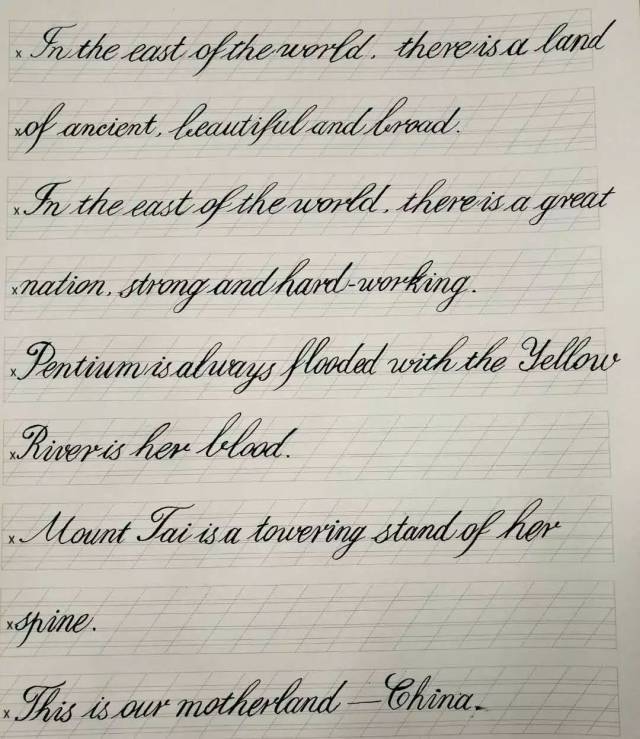 x In the east of the world. there is a land
x of ancient, beautiful and broad.
x In the east of the world. there is a great
x nation, strong and hard-working.
x Pentium is always flooded with the Yellow
x River is her blood.
x Mount Tai is a towering stand of her
x spine.
x This is our motherland — China.